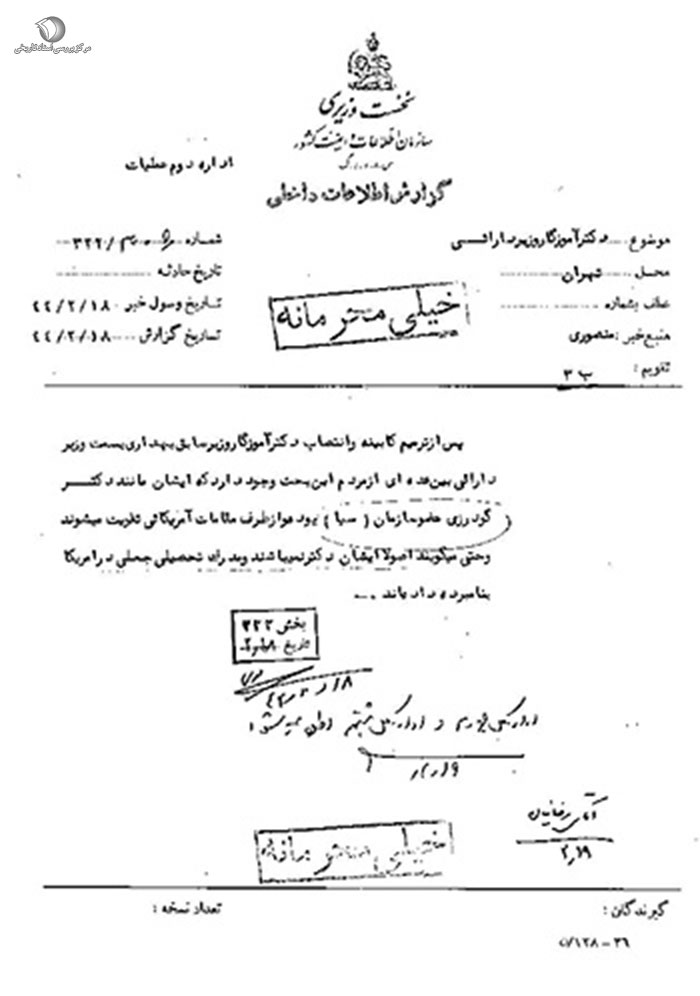 مرکز بررسی اسناد تاریخی
نخست وزیری
سازمان اطلاعات و امنیت کشور
س.ا.و.ا.ک
اداره دوم عملیات
گزارش اطلاعات داخلی
موضوع ..... دکتر آموزگار وزیر دارائی
شماره /۳۲۲
محل ..... تهران
تاریخ حادثه
عطف بشماره
تاریخ وصول خبر ۴۴/۲/۱۸
منبع خبر : منصوری
تاریخ گزارش ۴۴/۲/۱۸
تقویم : ب ۳
خیلی محرمانه
پس از ترمیم کابینه و انتصاب دکتر آموزگار وزیر سابق بهداری بسمت وزیر
دارائی بین عده ای از مردم این بحث وجود دارد که ایشان مانند دکتر
گودرزی عضو سازمان ( سیا ) بوده و از طرف مقامات آمریکائی تقویت میشوند
وحتی میگویند اصولا ایشان دکتر نمیباشند ومدرک تحصیلی جعلی در امریکا
بنامبرده داده اند
بخش ۳۲۲
تاریخ ۲/۱۸
۲/۱۹
آقای
۲/۱۹
خیلی محرمانه
گیرندگان :
تعداد نسخه :
۵/۱۲۸-۳۶